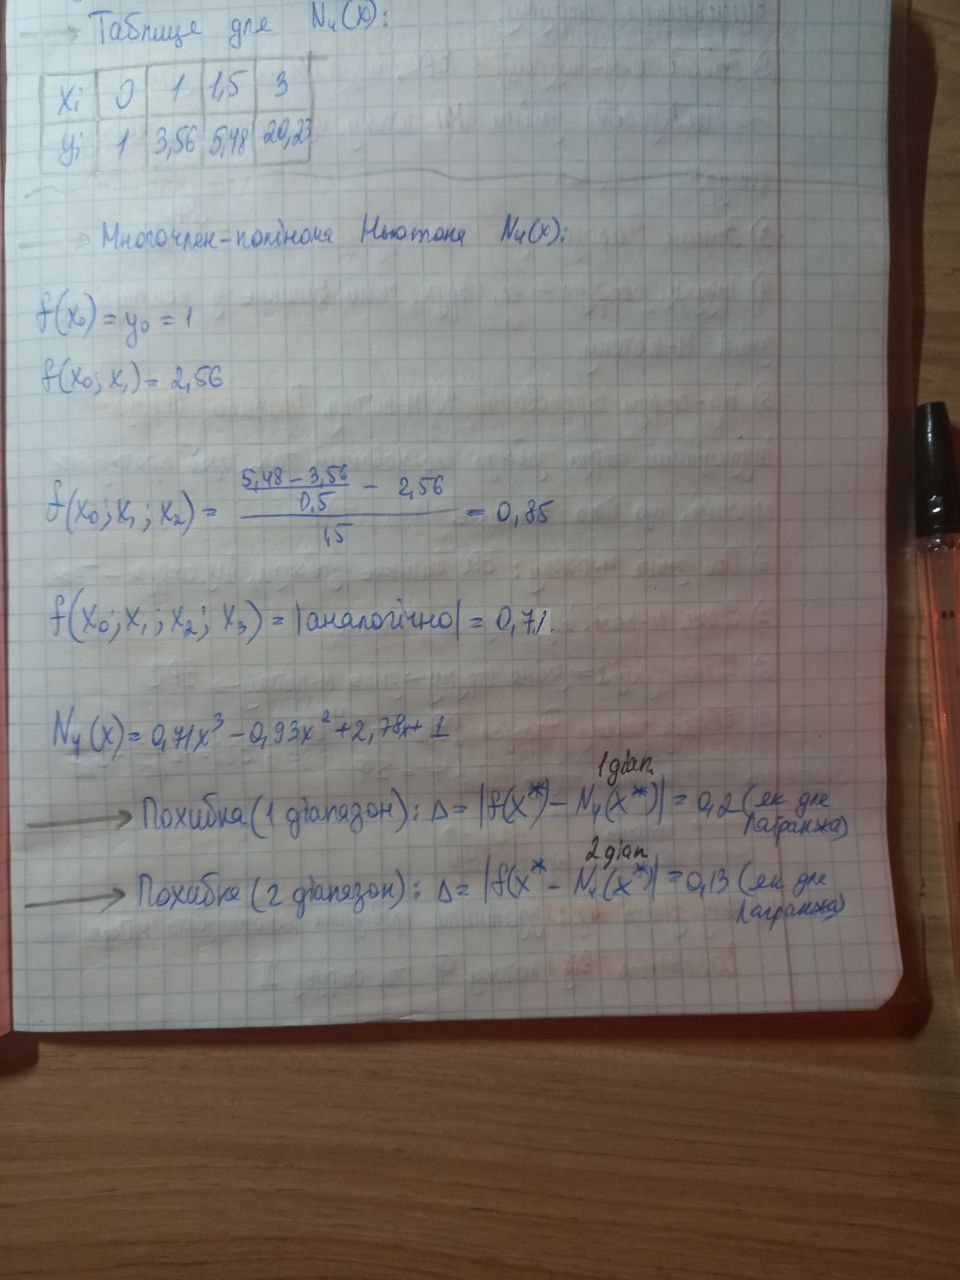 Таблице для N₄(x):
xᵢ 0 1 1,5 3
yᵢ 1 3,56 5,48 20,23
Многочлен-полінома Ньютона N₄(x):
f(x₀) = y₀ = 1
f(x₀; x₁) = 2,56
5,48 - 3,56
0,5 - 2,56
f(x₀; x₁; x₂) = = 0,85
1,5
f(x₀; x₁; x₂; x₃) = |аналогічно| = 0,71.
N₄(x) = 0,71x³ - 0,93x² + 2,78x + 1
1 діап.
Похибка (1 діапазон): Δ = |f(x*) - N₄(x*)| = 0,2 (як для
Лагранжа)
2 діап
Похибка (2 діапазон): Δ = |f(x* - N₄(x*)| = 0,13 (як для
Лагранжа)